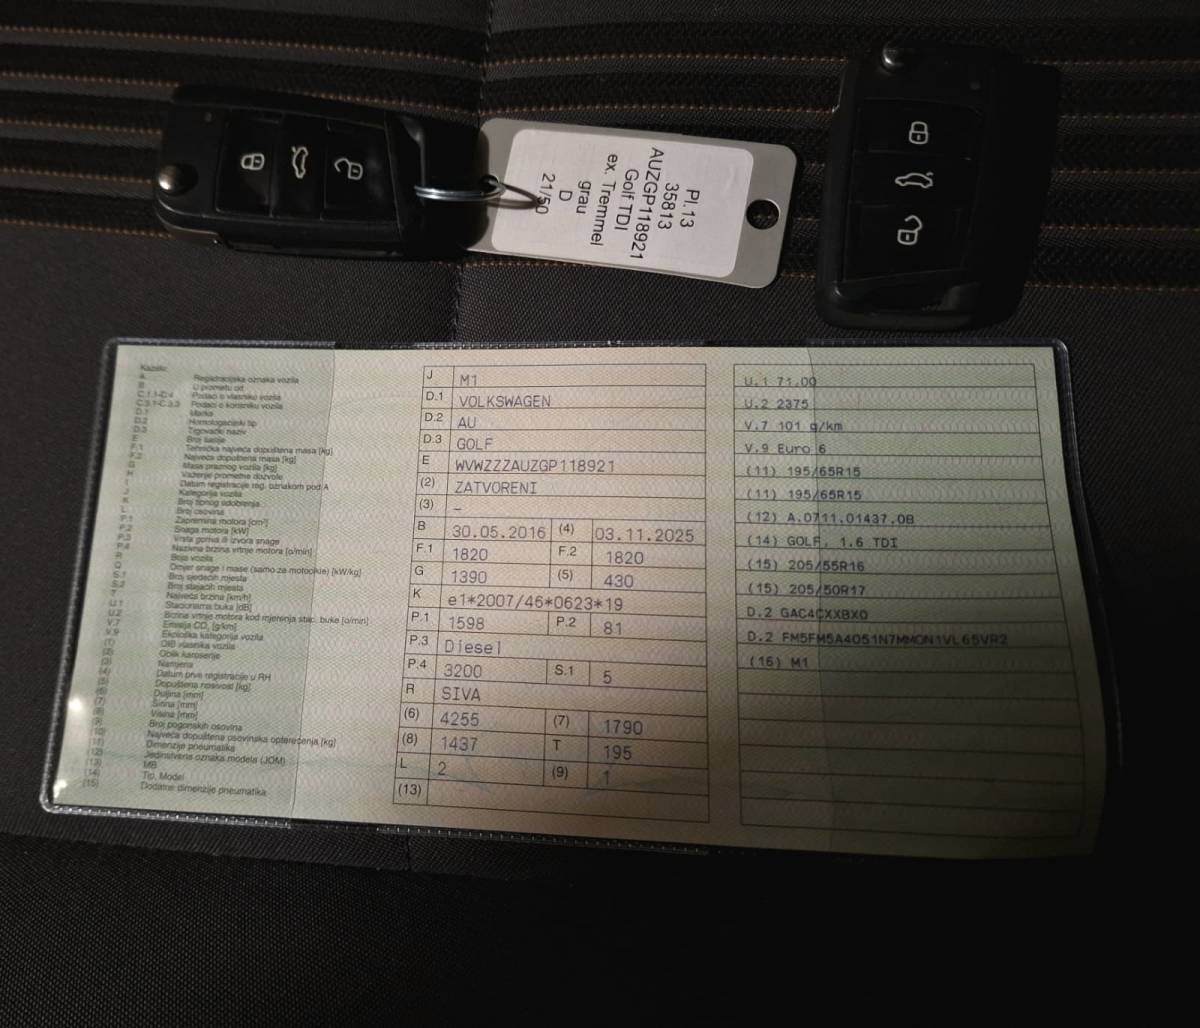 Pl.13
35813
AUZGP118921
Golf TDI
ex. Tremmel
grau
D
21/50
Kazalo:
A Registracijska oznaka vozila
B U prometu od
C.1.1-C.4 Podaci o vlasniku vozila
C.3.1-C.3.3 Podaci o korisniku vozila
D.1 Marka
D.2 Homologacijski tip
D.3 Trgovački naziv
E Broj šasije
F.1 Tehnička najveća dopuštena masa [kg]
F.2 Najveća dopuštena masa [kg]
G Masa praznog vozila [kg]
H Važenje prometne dozvole
I Datum registracije reg. oznakom pod A
J Kategorija vozila
K Broj tipnog odobrenja
L Broj osovina
P.1 Zapremina motora [cm³]
P.2 Snaga motora [kW]
P.3 Vrsta goriva ili izvora snage
P.4 Nazivna brzina vrtnje motora [o/min]
R Boja vozila
Q Omjer snage i mase (samo za motocikle) [kW/kg]
S.1 Broj sjedećih mjesta
S.2 Broj stajaćih mjesta
T Najveća brzina [km/h]
U.1 Stacionarna buka [dB]
U.2 Brzina vrtnje motora kod mjerenja stac. buke [o/min]
V.7 Emisija CO₂ [g/km]
V.9 Ekološka kategorija vozila
(1) OIB vlasnika vozila
(2) Oblik karoserije
(3) Namjena
(4) Datum prve registracije u RH
(5) Dopuštena nosivost [kg]
(6) Duljina [mm]
(7) Širina [mm]
(8) Visina [mm]
(9) Broj pogonskih osovina
(10) Najveća dopuštena osovinska opterećenja [kg]
(11) Dimenzije pneumatika
(12) Jedinstvena oznaka modela (JOM)
(13) MB
(14) Tip, Model
(15) Dodatne dimenzije pneumatika
J M1
D.1 VOLKSWAGEN
D.2 AU
D.3 GOLF
E WVWZZZAUZGP118921
(2) ZATVORENI
(3) –
B 30.05.2016 (4) 03.11.2025
F.1 1820 F.2 1820
G 1390 (5) 430
K e1*2007/46*0623*19
P.1 1598 P.2 81
P.3 Diesel
P.4 3200 S.1 5
R SIVA
(6) 4255 (7) 1790
(8) 1437 T 195
L 2 (9) 1
(13)
U.1 71.00
U.2 2375
V.7 101 g/km
V.9 Euro 6
(11) 195/65R15
(11) 195/65R15
(12) A.0711.01437.0B
(14) GOLF, 1.6 TDI
(15) 205/55R16
(15) 205/50R17
D.2 GAC4CXXBX0
D.2 FM5FM5A4051N7MMON1VL65VR2
(16) M1